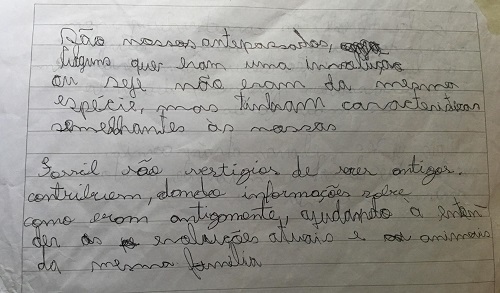 São nossos antepassados,
Alguns quer eram uma involução
ou seje não eram da mesma
espécie, mas tinham características
semelhantes às nossas
Fossil são vestígios de seres antigos.
contribuem, dando informações sobre
como eram antigamente, ajudando à enten-
der as evoluições atuais e animais
da mesma família